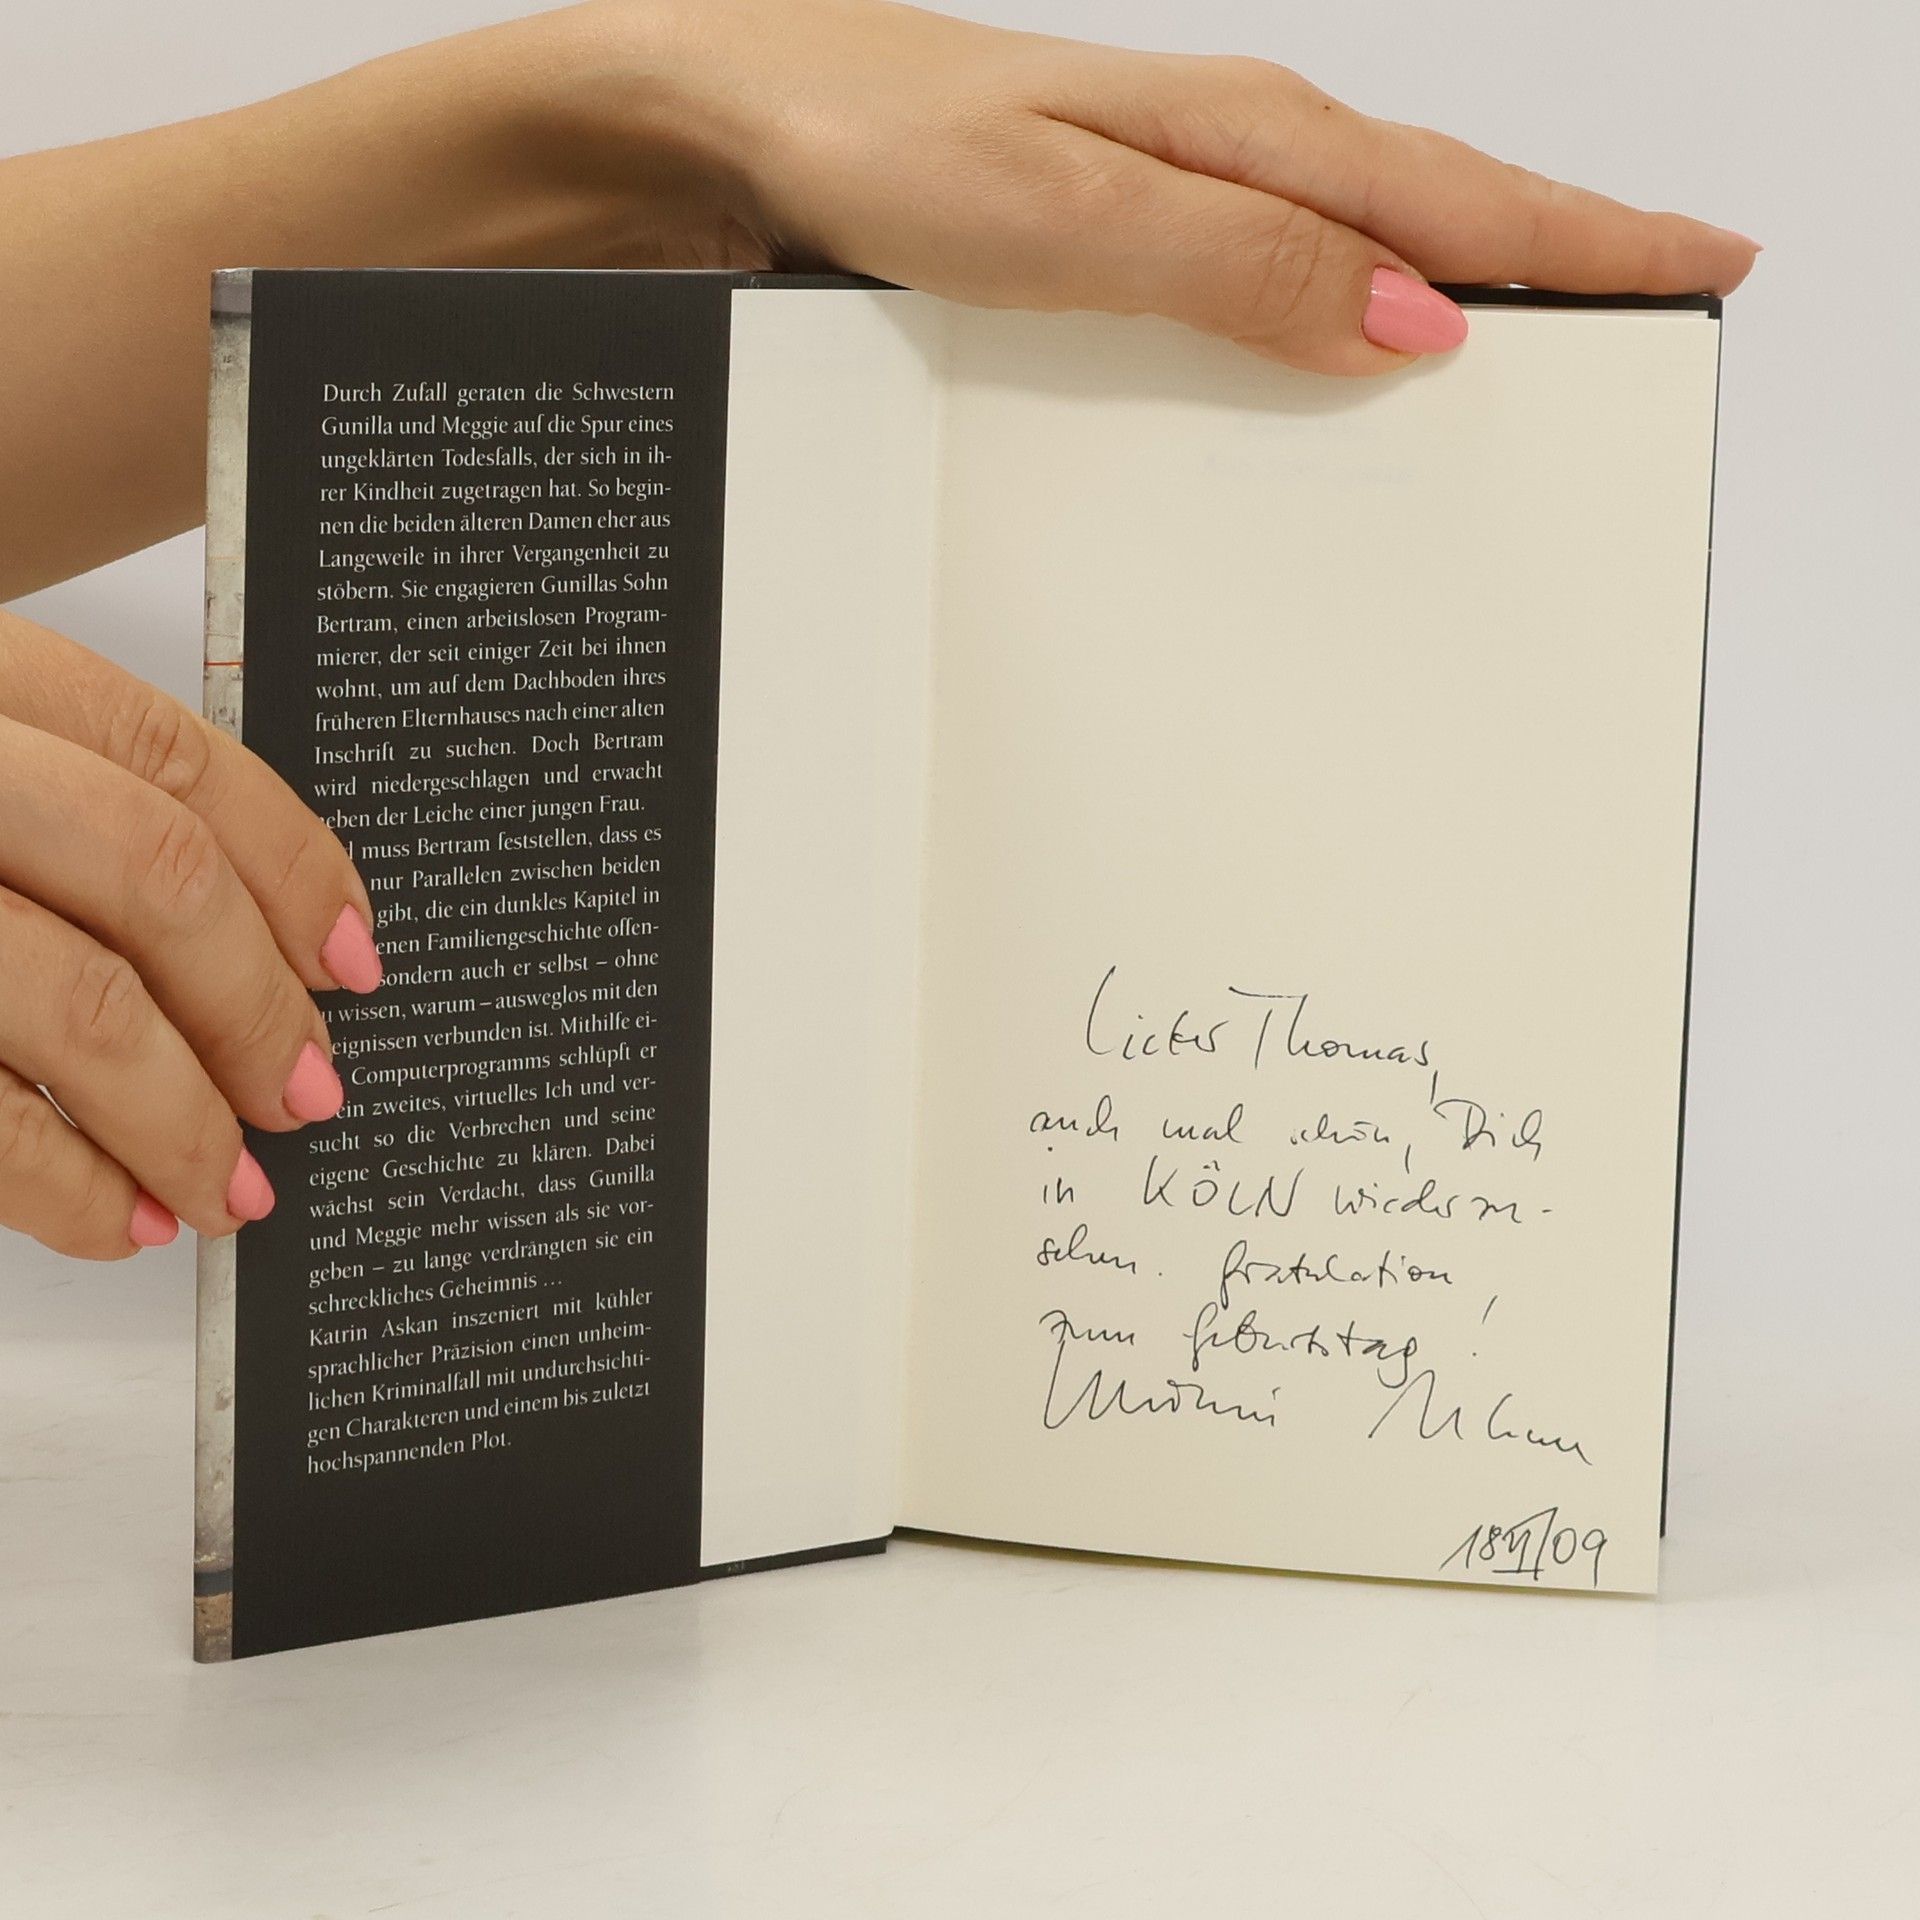 Durch Zufall geraten die Schwestern
Gunilla und Meggie auf die Spur eines
ungeklärten Todesfalls, der sich in ih-
rer Kindheit zugetragen hat. So begin-
nen die beiden älteren Damen eher aus
Langeweile in ihrer Vergangenheit zu
stöbern. Sie engagieren Gunillas Sohn
Bertram, einen arbeitslosen Program-
mierer, der seit einiger Zeit bei ihnen
wohnt, um auf dem Dachboden ihres
früheren Elternhauses nach einer alten
Inschrift zu suchen. Doch Bertram
wird niedergeschlagen und erwacht
neben der Leiche einer jungen Frau.
muss Bertram feststellen, dass es
nur Parallelen zwischen beiden
gibt, die ein dunkles Kapitel in
enen Familiengeschichte offen-
sondern auch er selbst – ohne
u wissen, warum – ausweglos mit den
eignissen verbunden ist. Mithilfe ei-
Computerprogramms schlüpft er
ein zweites, virtuelles Ich und ver-
sucht so die Verbrechen und seine
eigene Geschichte zu klären. Dabei
wächst sein Verdacht, dass Gunilla
und Meggie mehr wissen als sie vor-
geben – zu lange verdrängten sie ein
schreckliches Geheimnis ...
Katrin Askan inszeniert mit kühler
sprachlicher Präzision einen unheim-
lichen Kriminalfall mit undurchsichti-
gen Charakteren und einem bis zuletzt
hochspannenden Plot.
Lieber Thomas,
auch mal schön, Dich
in KÖLN wiederzu-
sehen. Gratulation,
zum Geburtstag!
18 /09